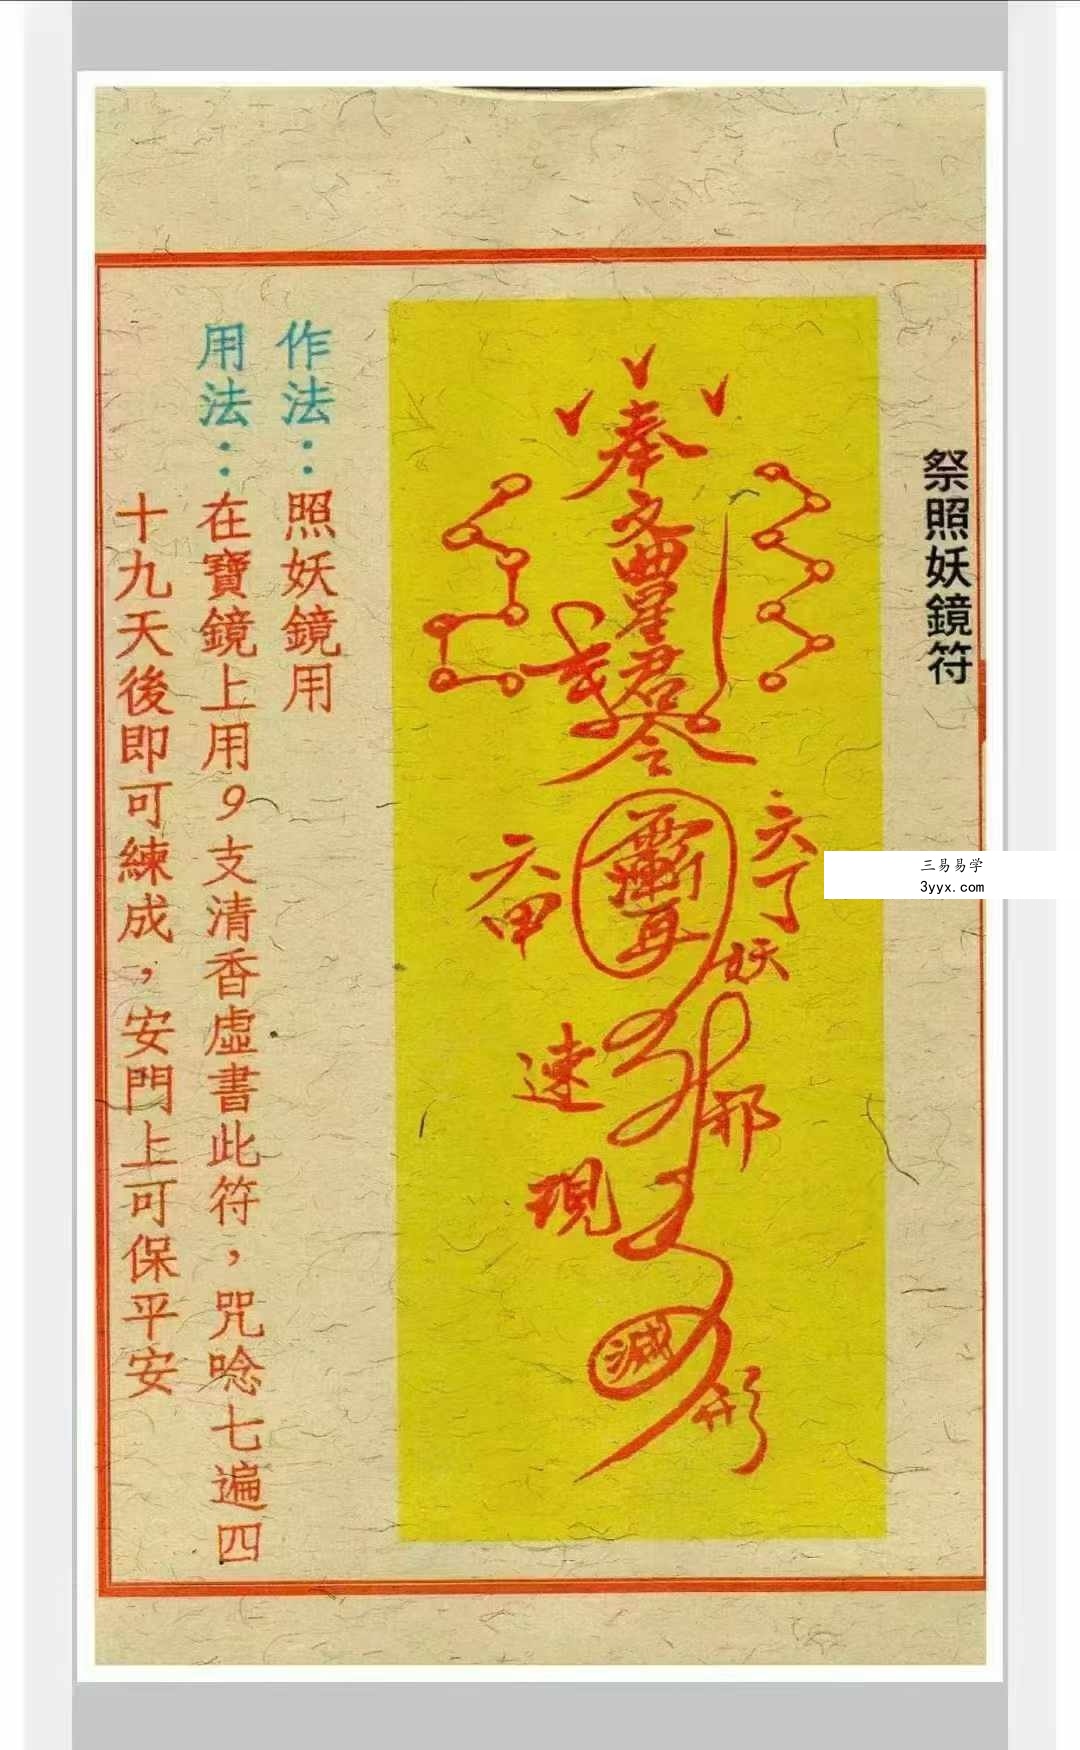 祭照妖鏡符
奉
文曲星君
令
六丁
六甲
妖
邪
速
現
滅
形
作法：照妖鏡用
用法：在寶鏡上用9支清香虛書此符，咒唸七遍四
十九天後即可練成，安門上可保平安
三易易学
3yyx.com